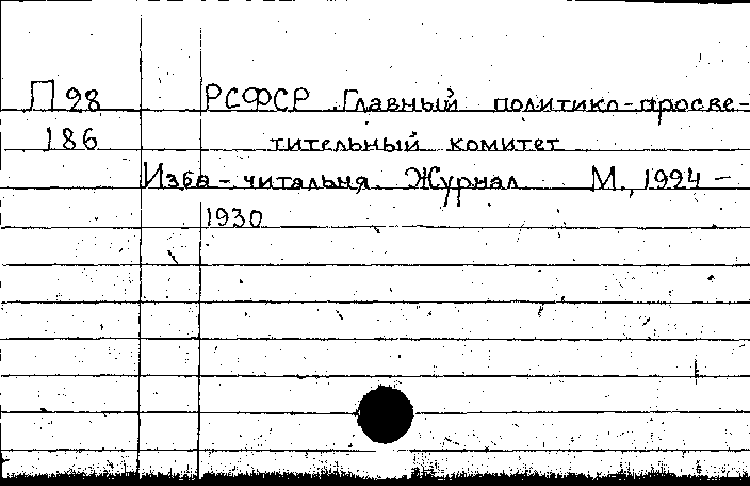 П 28 РСФСР. Главный политико-просве-
186 тительный комитет
Изба-читальня. Журнал М., 1924 -
1930